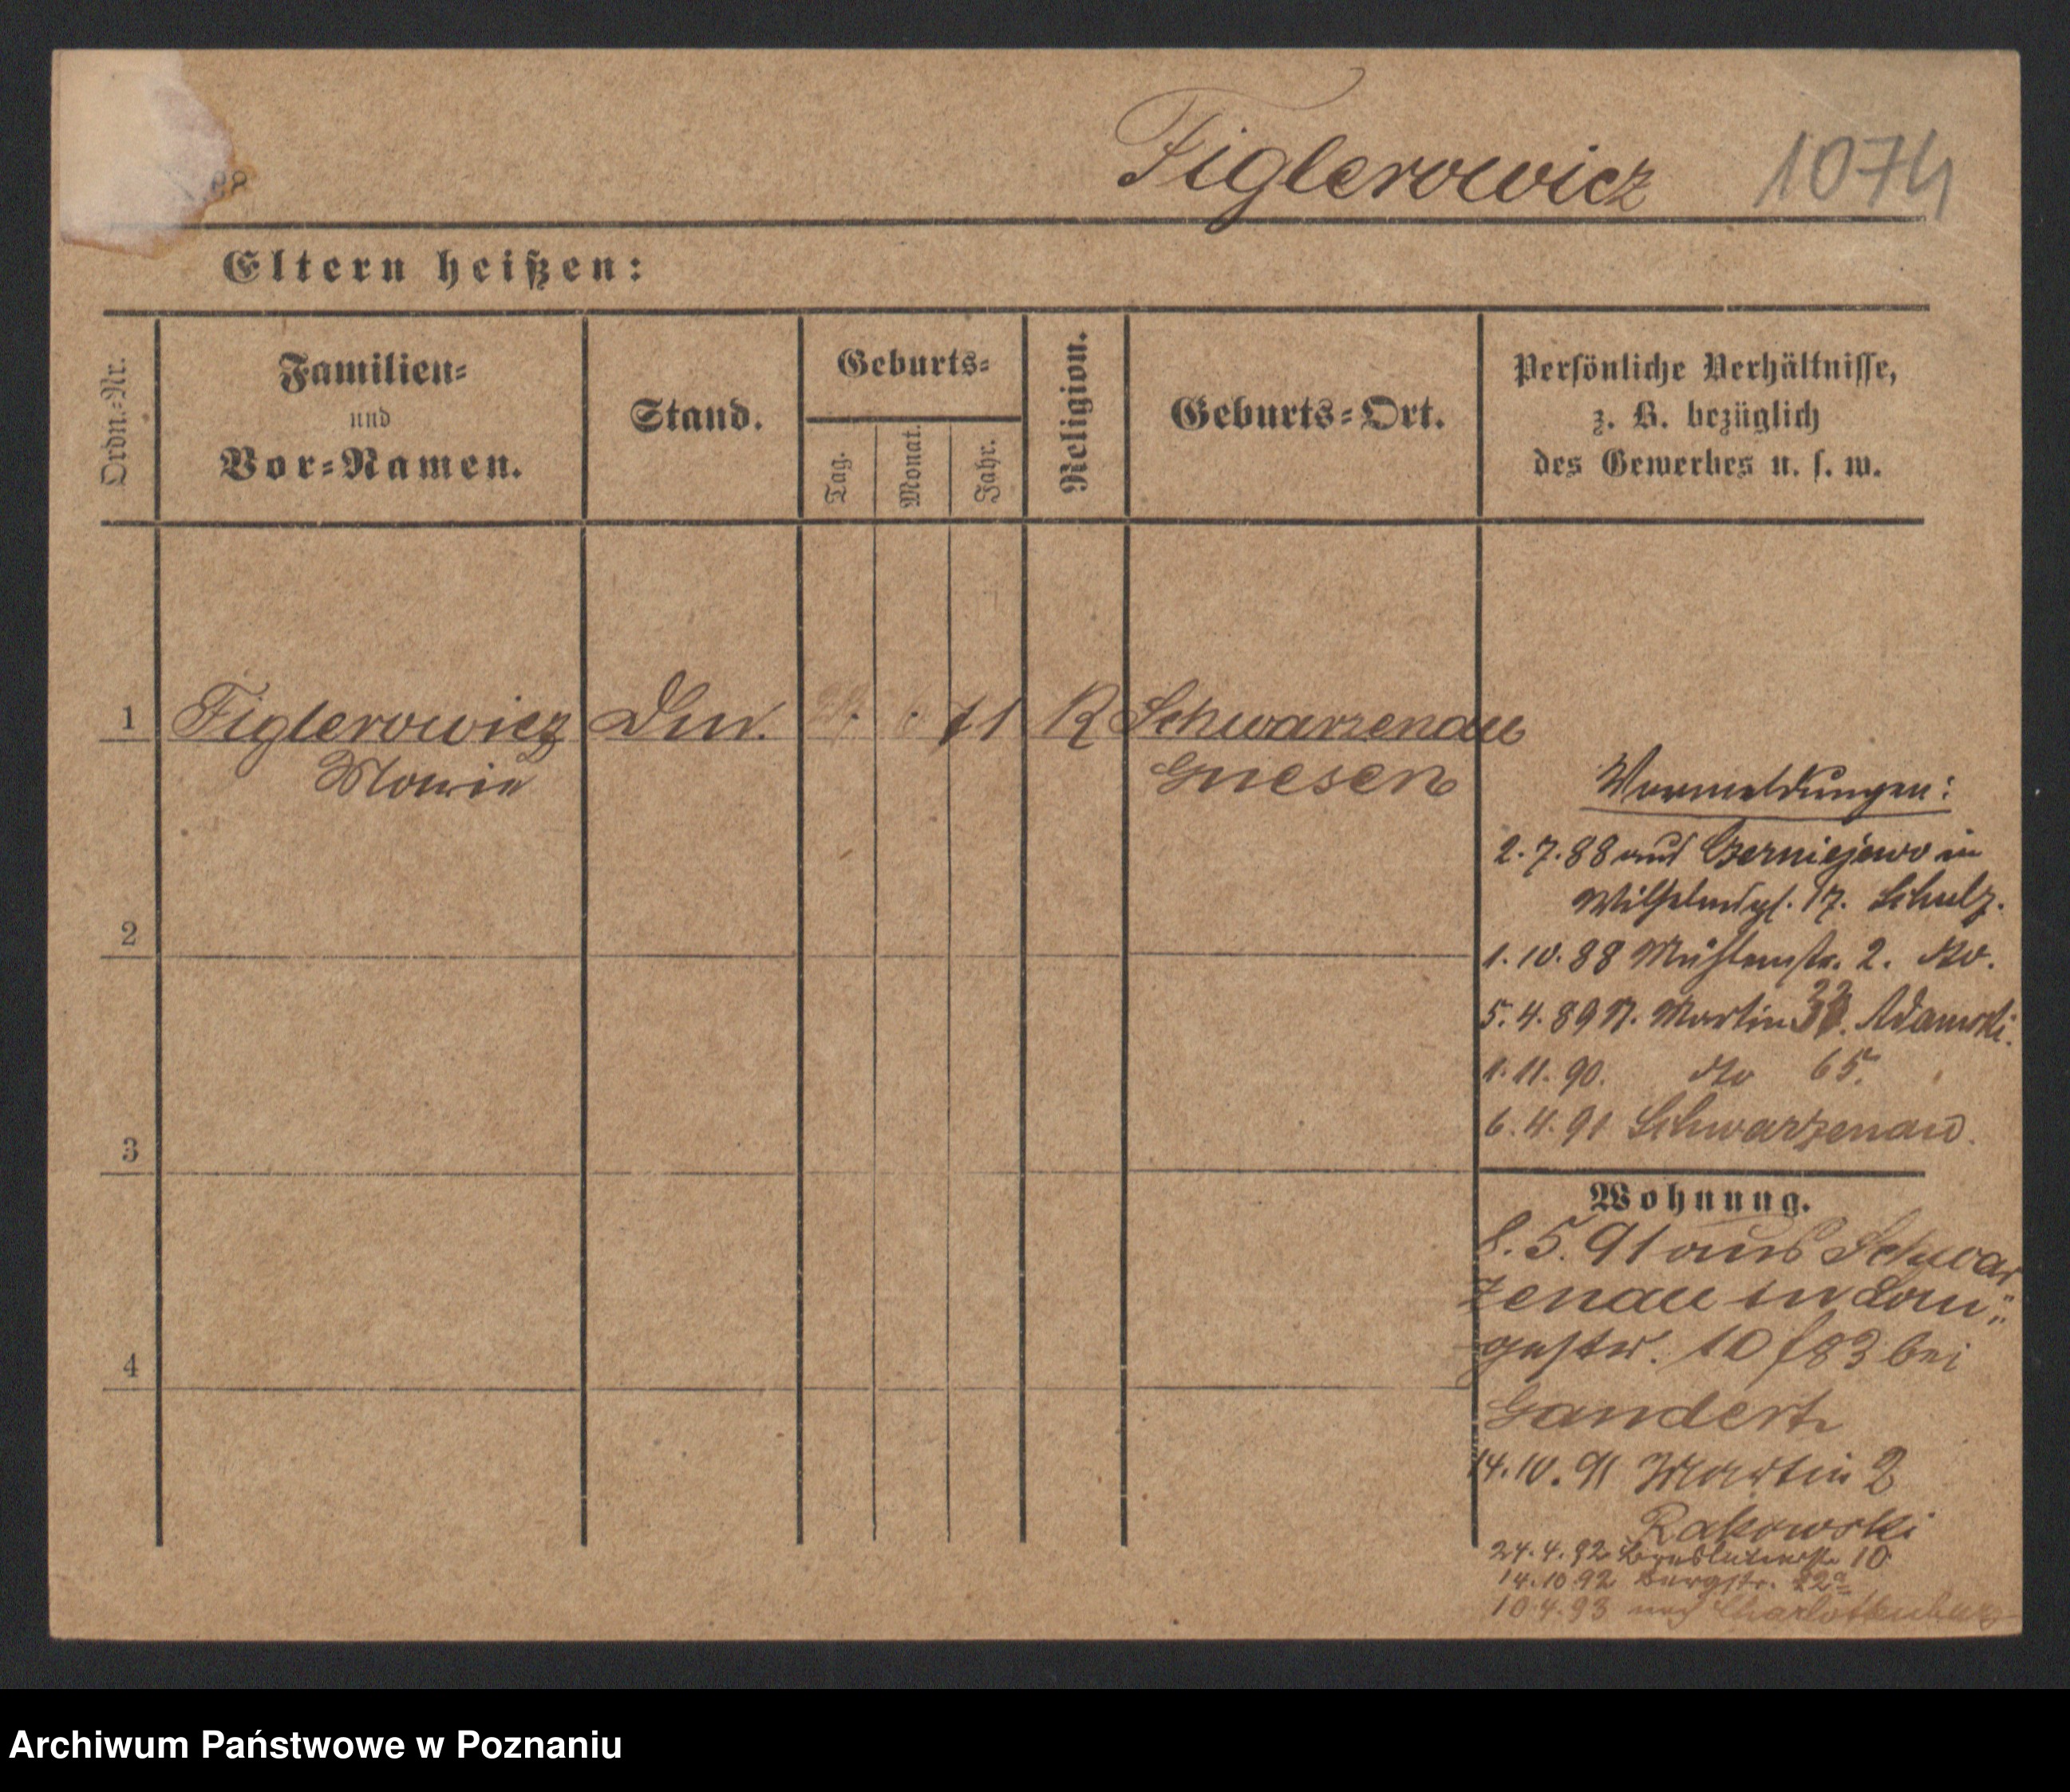 Figlerowicz 1074
Eltern heißen:
Ordn.-Nr.
Familien-
und
Vor-Namen.
Stand.
Geburts-
Tag.
Monat.
Jahr.
Religion.
Geburts-Ort.
Persönliche Verhältnisse,
z. B. bezüglich
des Gewerbes u. s. w.
1 Figlerowicz 71 R Schwarzenau
Marie Gnesen
Vormeldungen:
2.7.88 aus Czerniejewo in
Wilhelmspl. 17. Schulz.
1.10.88 Mühlenstr. 2. do.
5.4.89 St. Martin 33. Adamski.
1.11.90. do 65.
6.4.91 Schwarzenau.
2
3
4
Wohnung.
8.5.91 aus Schwar
zenau in Lan
gestr. 10 bei
Gandert
14.10.91 Martin 2
Rakowski
24.4.92 Breslauerstr. 10
14.10.92 Bergstr. 12a
10.4.93 nach Charlottenburg
Archiwum Państwowe w Poznaniu